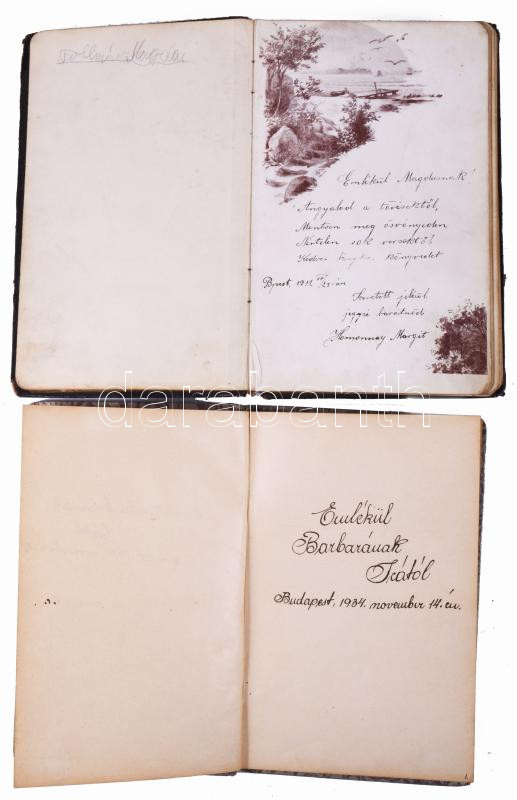 Emlékül Magdusnak!
Angyalod a tövisektől,
Mentsen meg ösvényeden
Nírtelen sok versektől
Kedves könyvedet
Bpest, 1912
Szeretett jeléül
barátnéd
Homonnay Margit
darabanth
Emlékül
Barbarának
Icától
Budapest, 1934. november 14.-én.
1.